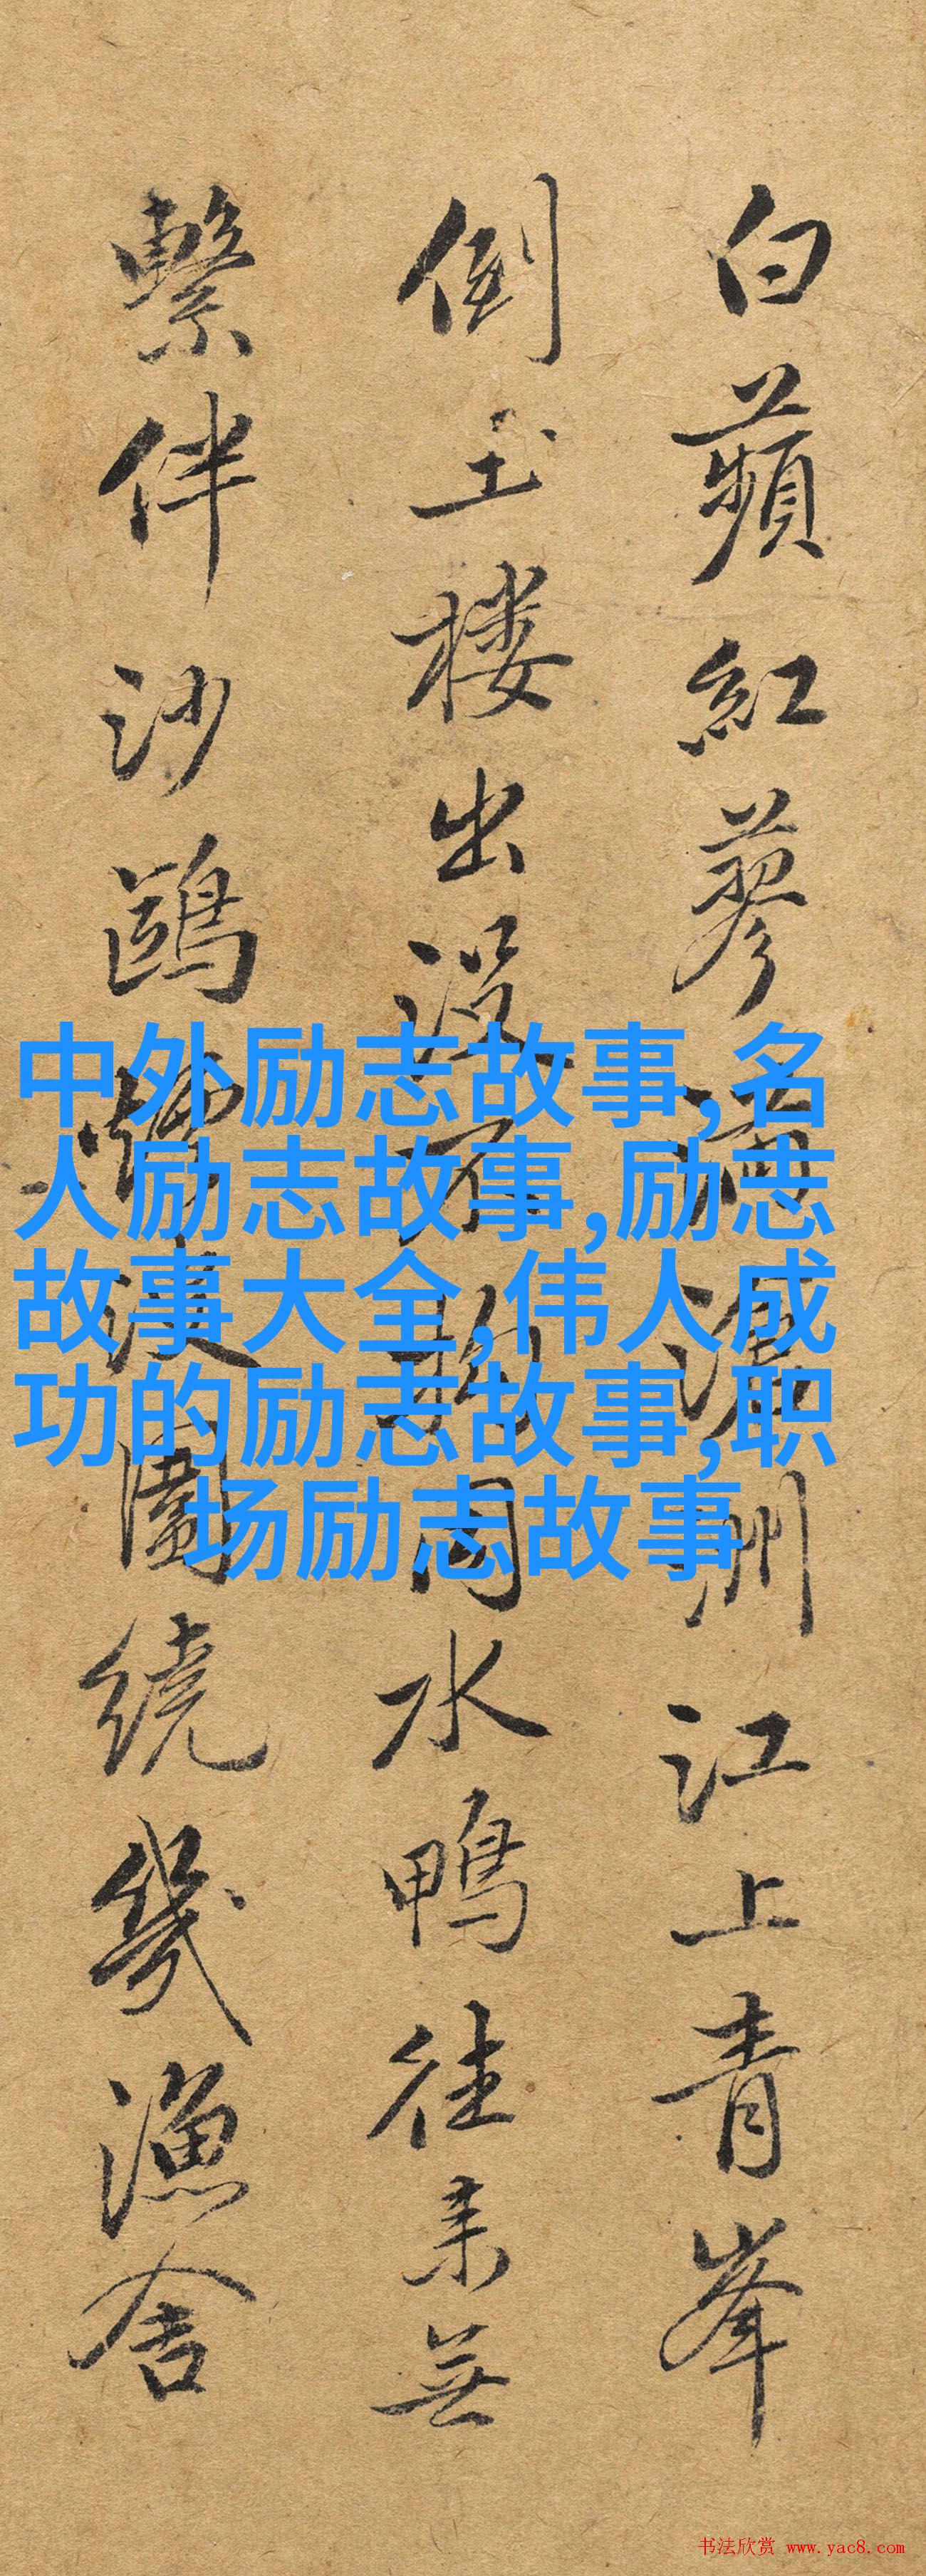 白蘋紅蓼滿滄洲江上青峯
倒玉楼出没不拘閑水鴨往来無
繫伴沙鷗圍繞幾漁舍
中外励志故事,名
人励志故事,励志
故事大全,伟人成
功的励志故事,职
场励志故事
书法欣赏 www.yac8.com